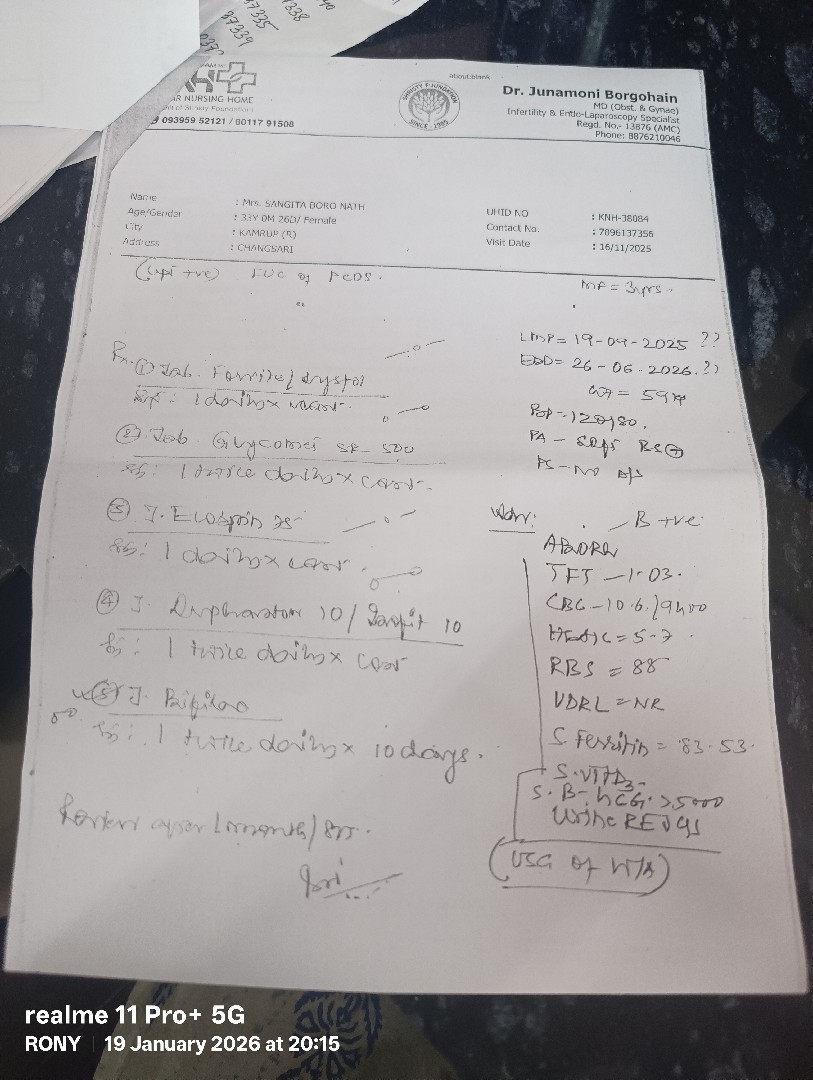 37335
37338
40
37339
937
R NURSING HOME
093959 52121 / 80117 91508
about:blank
SINCE - 1985
Dr. Junamoni Borgohain
MD (Obst. & Gynae)
Infertility & Endo-Laparoscopy Specialist
Regd. No.- 13876 (AMC)
Phone: 8876210046
Name : Mrs. SANGITA BORO NATH
Age/Gender : 33Y 0M 26D/ Female
City : KAMRUP (R)
Address : CHANGSARI
UHID NO : KNH-38084
Contact No. : 7896137356
Visit Date : 16/11/2025
(upt +ve) FUC of PCOS.
MF = 3yrs.
Rx. ① Tab.
1 daily x
② Tab. Glycomet SR 500
1 twice daily x cont.
③ T. Ecosprin 75
1 daily x cont
④ T. Duphaston 10 / 10
1 twice daily x cont
⑤ T.
1 twice daily x 10 days.
Review after 1 month / SOS.
LMP = 19-09-2025 ??
EDD = 26-06-2026 ??
BP - 120/80.
PA - soft BS +
B +ve
TFT - 1.03.
CBC - 10.6 / 9400
HbA1C = 5.7
RBS = 88
VDRL = NR
S. Ferritin = 83.53.
S. VITD3 -
S. B-hCG > 5000
Urine RE
(USG of W/A)
realme 11 Pro+ 5G
RONY | 19 January 2026 at 20:15